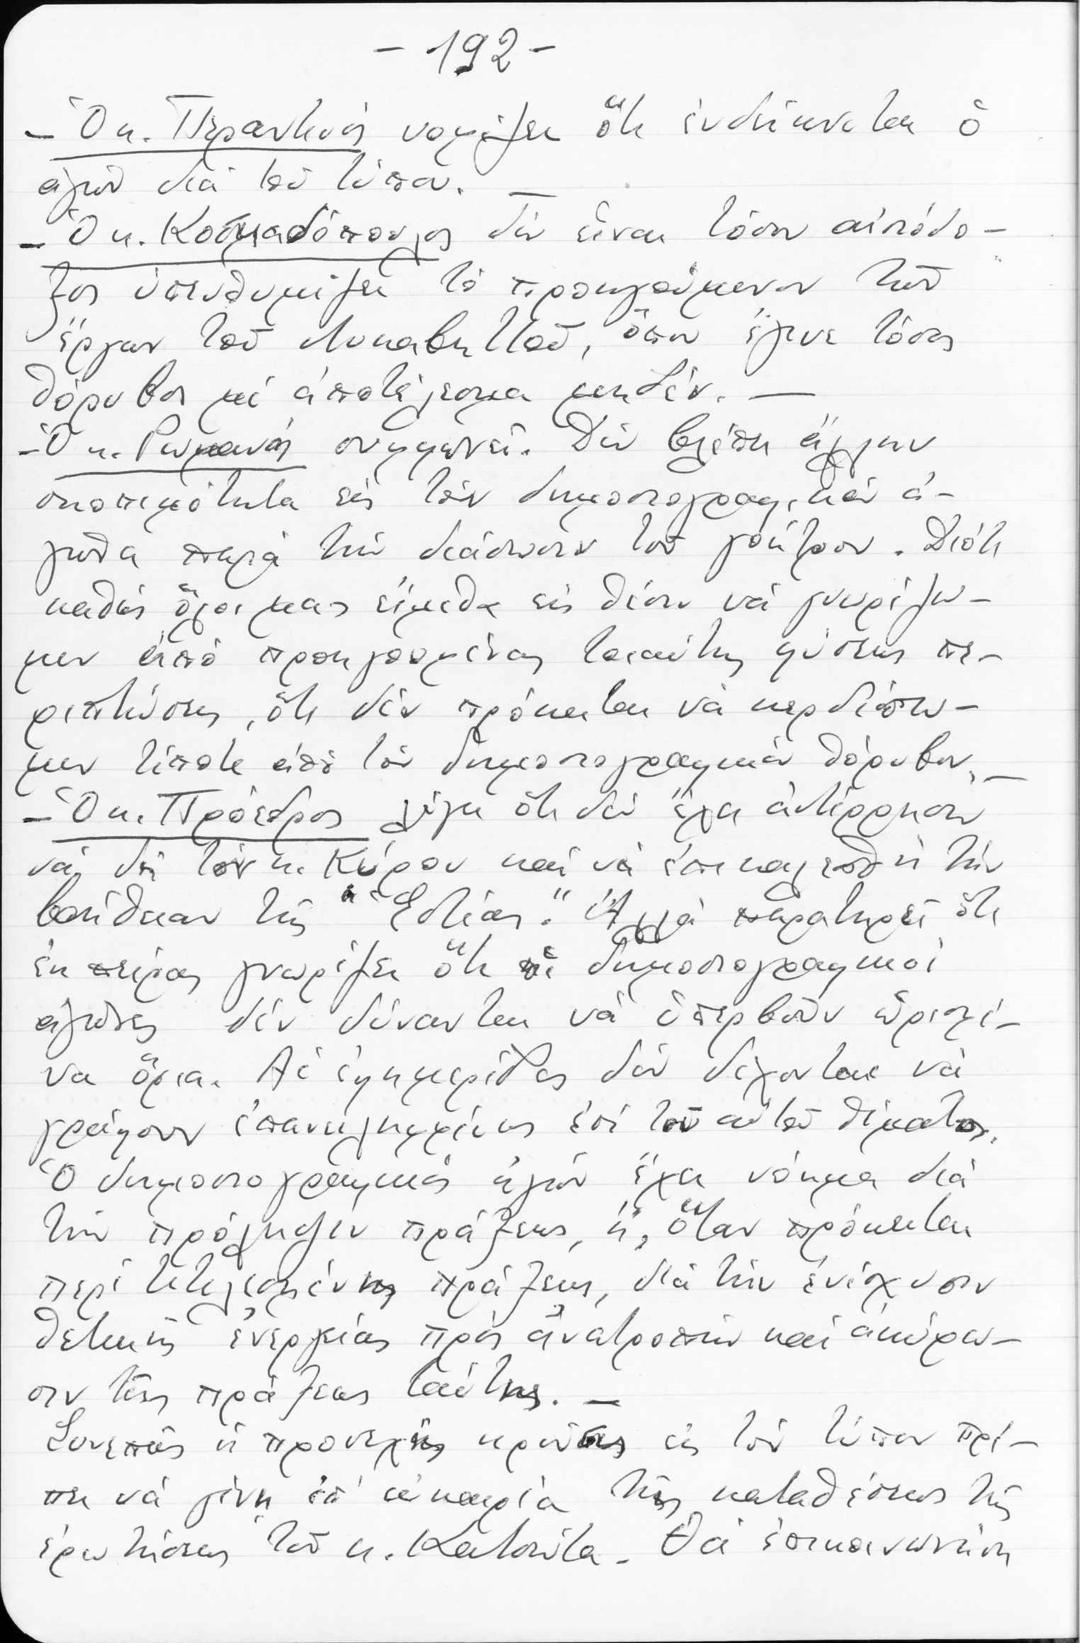 - 192 -
- Ὁ κ. Περαντινός νομίζει ὅτι ἐνδείκνυται ὁ
ἀγών διά τοῦ τύπου. -
- Ὁ κ. Κοσμαδόπουλος δέν εἶναι τόσον αἰσιόδο-
ξος ὑπενθυμίζει τό προηγούμενον τῶν
ἔργων τοῦ Λυκαβηττοῦ, ὅπου ἔγινε τόσος
θόρυβος μέ ἀποτέλεσμα μηδέν. -
- Ὁ κ. Ρωμανός συμφωνεῖ. Δέν βλέπει ἄλλην
σκοπιμότητα εἰς τόν δημοσιογραφικόν ἀ-
γῶνα παρά τήν διάσωσιν τοῦ γοήτρου. Διότι
καθώς ὅλοι μας εἴμεθα εἰς θέσιν νά γνωρίζω-
μεν ἀπό προηγουμένας τοιαύτης φύσεως πε-
ριπτώσεις, ὅτι δέν πρόκειται νά κερδίσω-
μεν τίποτε ἀπό τόν δημοσιογραφικόν θόρυβον. -
- Ὁ κ. Πρόεδρος λέγει ὅτι δέν ἔχει ἀντίρρησιν
νά δῆ τόν κ. Κύρου καί νά ἐπικαλεσθῆ τήν
βοήθειαν τῆς "Ἑστίας". Ἀλλά παρατηρεῖ ὅτι
ἐκ πείρας γνωρίζει ὅτι οἱ δημοσιογραφικοί
ἀγῶνες δέν δύνανται νά ὑπερβοῦν ὡρισμέ-
να ὅρια. Αἱ ἐφημερίδες δέν δέχονται νά
γράφουν ἐπανειλημμένως ἐπί τοῦ αὐτοῦ θέματος.
Ὁ δημοσιογραφικός ἀγών ἔχει νόημα διά
τήν πρόληψιν πράξεως, ἤ, ὅταν πρόκειται
περί τετελεσμένης πράξεως, διά τήν ἐνίσχυσιν
θετικῆς ἐνεργείας πρός ἀνατροπήν καί ἀκύρω-
σιν τῆς πράξεως ταύτης. -
Συνεπῶς ἡ προσεχής κροῦσις εἰς τόν τύπον πρέ-
πει νά γίνη ἐπ' εὐκαιρία τῆς καταθέσεως τῆς
ἐρωτήσεως τοῦ κ. Κατσώτα. Θά ἐπικοινωνήση